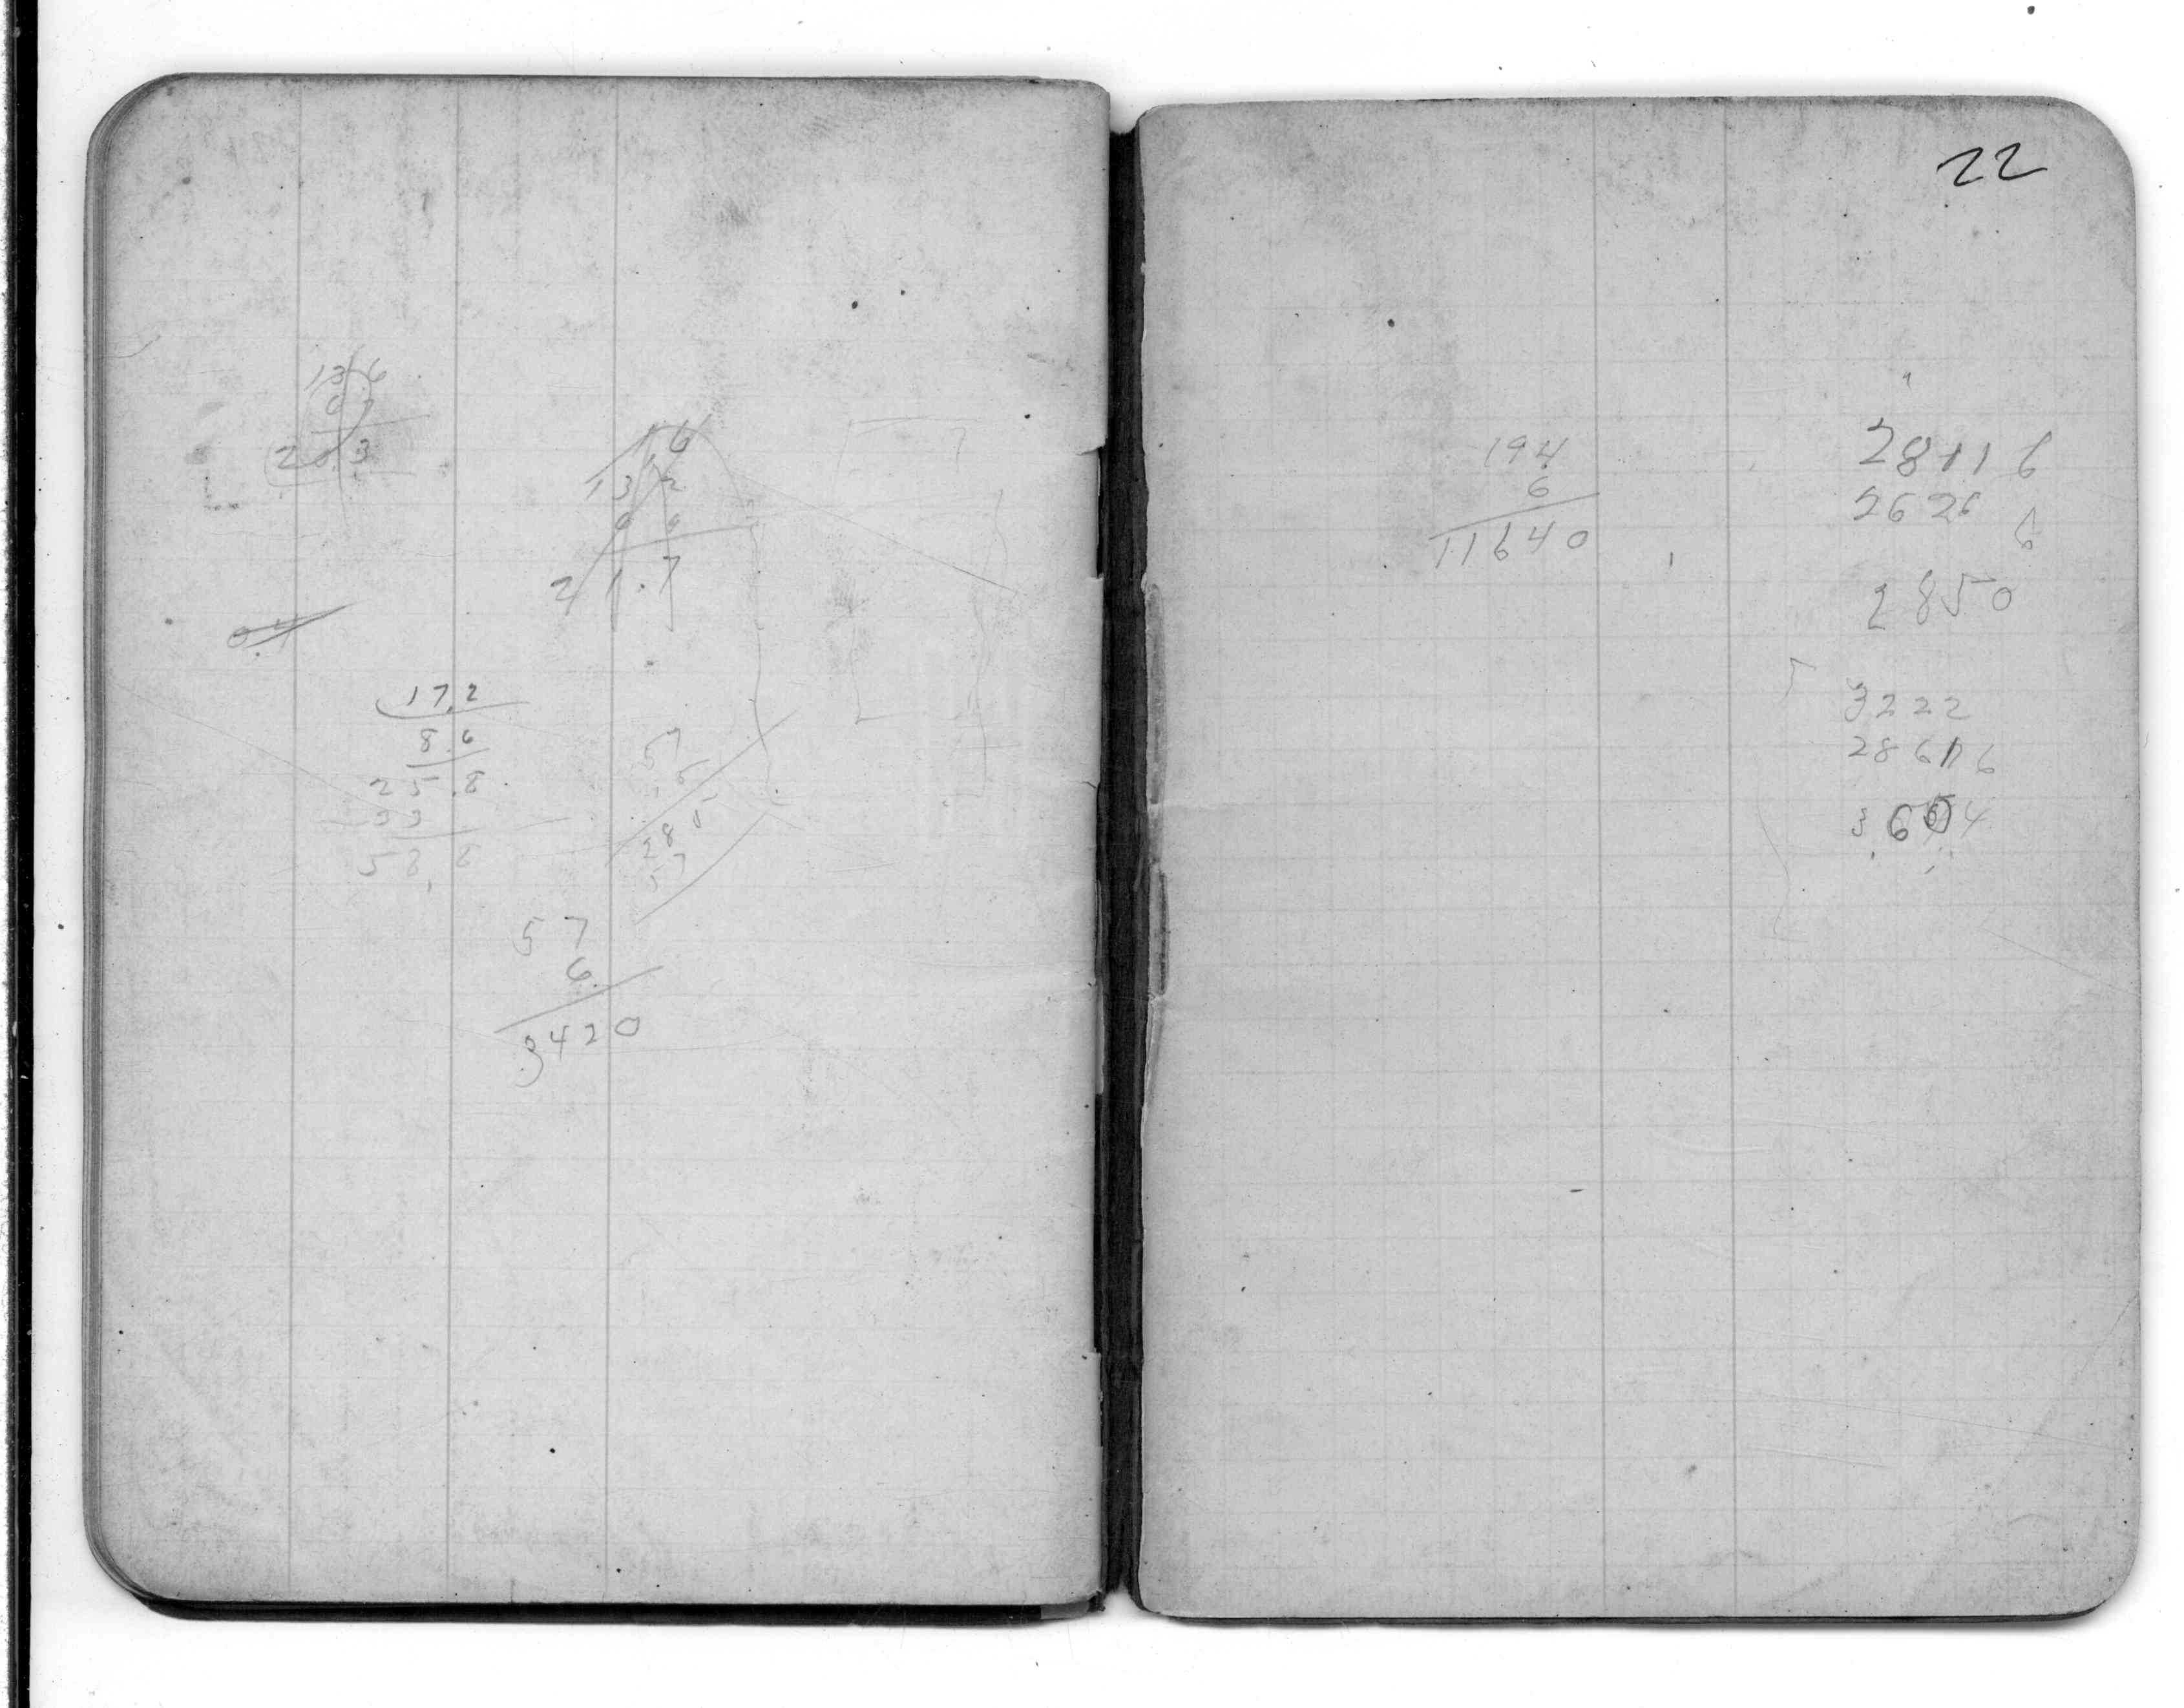 136
20.3
16
13 2
6 6
21.7
0.4
17.2
8.6
25.8
33
58.8
57
285
57
57
6
3420
22
194
6
11640
28116
2626 6
2850
3222
28616